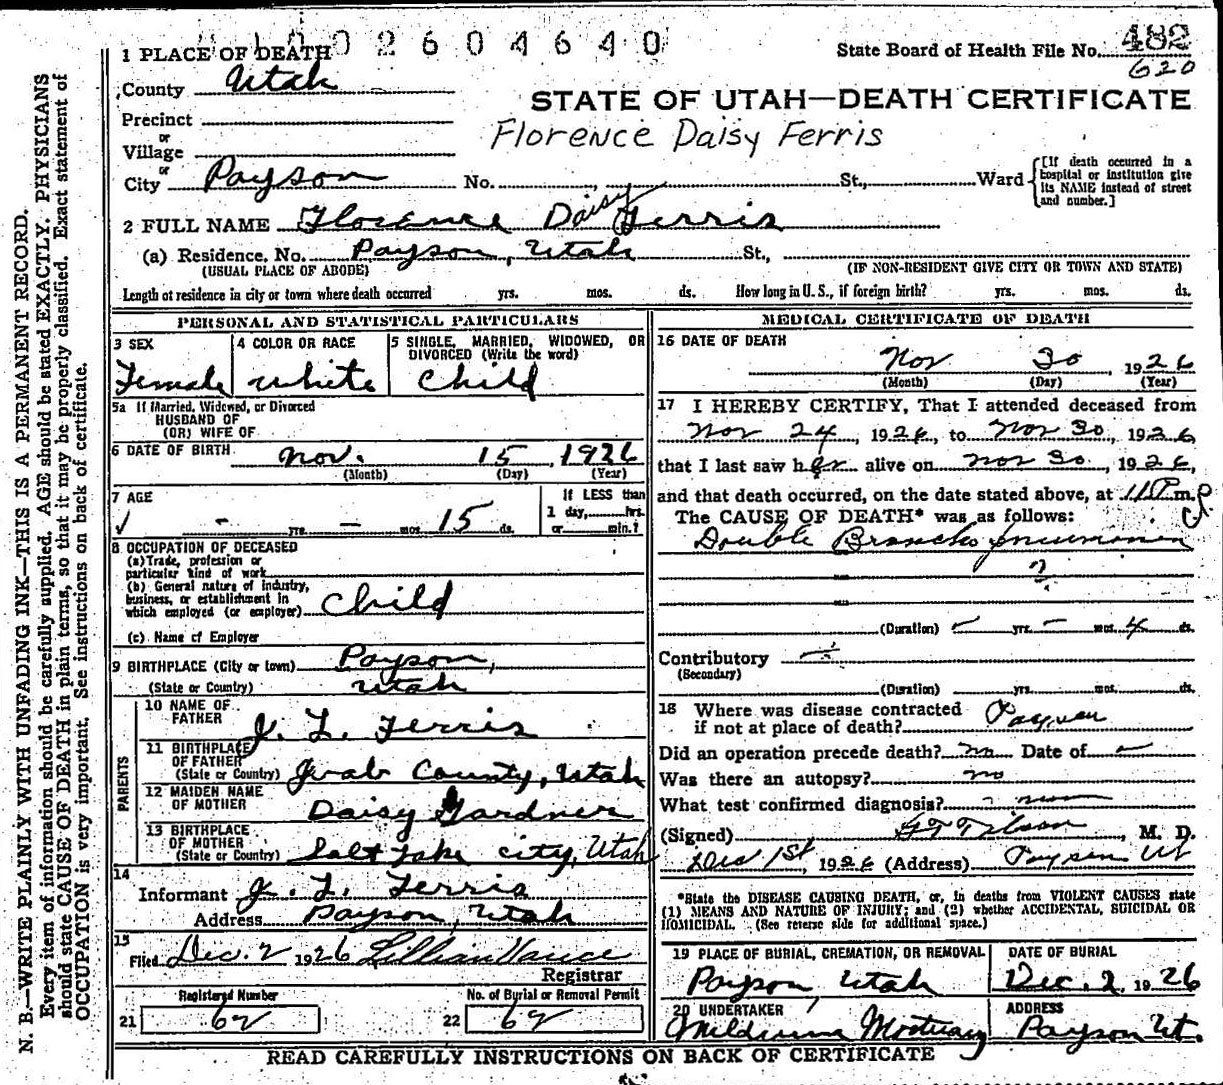 0 2 6 0 4 6 4 0
1 PLACE OF DEATH
State Board of Health File No. 482
620
County Utah
STATE OF UTAH—DEATH CERTIFICATE
Precinct
Florence Daisy Ferris
or
Village
or
City Payson No. St., Ward
[If death occurred in a hospital or institution give its NAME instead of street and number.]
2 FULL NAME Florence Daisy Ferris
(a) Residence, No. Payson, Utah St.,
(USUAL PLACE OF ABODE) (IF NON-RESIDENT GIVE CITY OR TOWN AND STATE)
Length of residence in city or town where death occurred yrs. mos. ds. How long in U. S., if foreign birth? yrs. mos. ds.
PERSONAL AND STATISTICAL PARTICULARS
3 SEX Female
4 COLOR OR RACE white
5 SINGLE, MARRIED, WIDOWED, OR DIVORCED (Write the word)
Child
5a If Married, Widowed, or Divorced
HUSBAND OF
(OR) WIFE OF
6 DATE OF BIRTH Nov. 15, 1926
(Month) (Day) (Year)
7 AGE
- yrs. - mos. 15 ds.
If LESS than
1 day, hrs.
or min.?
8 OCCUPATION OF DECEASED
(a) Trade, profession or
particular kind of work
(b) General nature of industry,
business, or establishment in
which employed (or employer) Child
(c) Name of Employer
9 BIRTHPLACE (City or town) Payson,
(State or Country) Utah
PARENTS
10 NAME OF
FATHER J. L. Ferris
11 BIRTHPLACE
OF FATHER
(State or Country) Juab County, Utah
12 MAIDEN NAME
OF MOTHER Daisy Gardner
13 BIRTHPLACE
OF MOTHER
(State or Country) Salt Lake City, Utah
14
Informant J. L. Ferris
Address Payson, Utah
15
Filed Dec. 2 1926 Lillian Vance
Registrar
Registered Number
21 62
No. of Burial or Removal Permit
22 62
MEDICAL CERTIFICATE OF DEATH
16 DATE OF DEATH
Nov 30, 1926
(Month) (Day) (Year)
17 I HEREBY CERTIFY, That I attended deceased from
Nov 24, 1926, to Nov 30, 1926
that I last saw her alive on Nov 30, 1926,
and that death occurred, on the date stated above, at 11 P m.
The CAUSE OF DEATH* was as follows:
Double Broncho pneumonia
?
(Duration) - yrs. - mos. 4 ds.
Contributory
(Secondary)
(Duration) yrs. mos. ds.
18 Where was disease contracted
if not at place of death? Payson
Did an operation precede death? no Date of -
Was there an autopsy? no
What test confirmed diagnosis?
(Signed) Tilson, M. D.
Dec 1st, 1926 (Address) Payson Ut
*State the DISEASE CAUSING DEATH, or, in deaths from VIOLENT CAUSES state
(1) MEANS AND NATURE OF INJURY; and (2) whether ACCIDENTAL, SUICIDAL OR
HOMICIDAL. (See reverse side for additional space.)
19 PLACE OF BURIAL, CREMATION, OR REMOVAL
Payson, Utah
DATE OF BURIAL
Dec. 2, 1926
20 UNDERTAKER
Mortuary
ADDRESS
Payson Ut.
READ CAREFULLY INSTRUCTIONS ON BACK OF CERTIFICATE
N. B.—WRITE PLAINLY WITH UNFADING INK—THIS IS A PERMANENT RECORD.
Every item of information should be carefully supplied. AGE should be stated EXACTLY. PHYSICIANS
should state CAUSE OF DEATH in plain terms, so that it may be properly classified. Exact statement of
OCCUPATION is very important. See instructions on back of certificate.